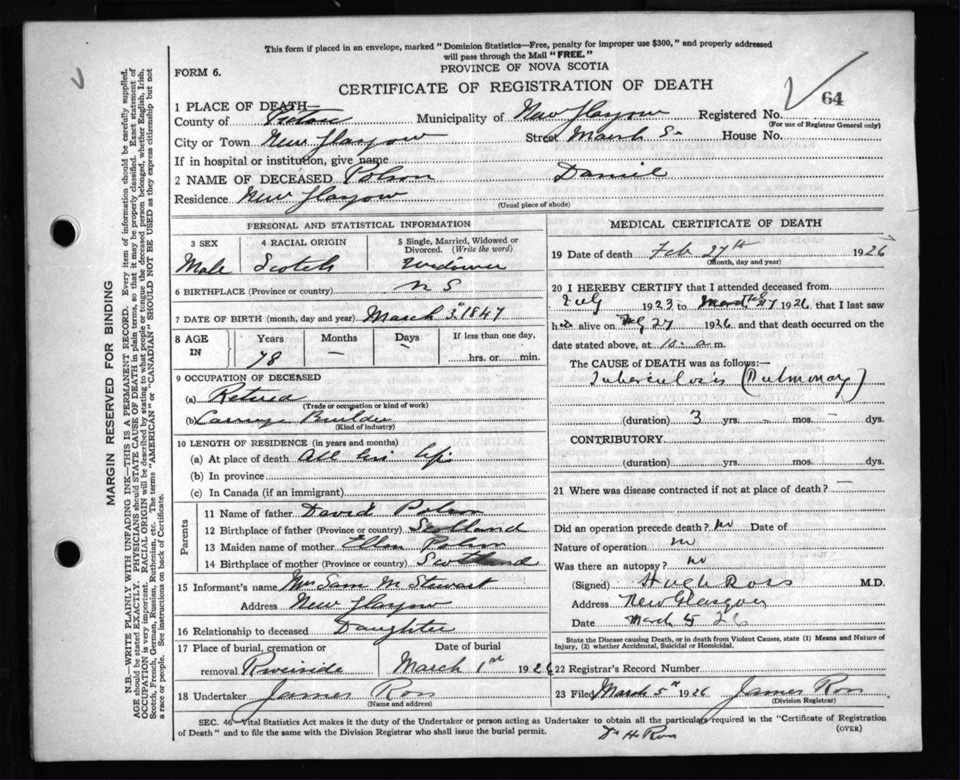 This form if placed in an envelope, marked "Dominion Statistics—Free, penalty for improper use $300," and properly addressed
will pass through the Mail "FREE."
PROVINCE OF NOVA SCOTIA
FORM 6.
CERTIFICATE OF REGISTRATION OF DEATH
64
1 PLACE OF DEATH—
County of Pictou Municipality of New Glasgow Registered No.
(For use of Registrar General only)
City or Town New Glasgow Street Marsh St House No.
If in hospital or institution, give name
2 NAME OF DECEASED Polson Daniel
Residence New Glasgow
(Usual place of abode)
PERSONAL AND STATISTICAL INFORMATION
3 SEX 4 RACIAL ORIGIN 5 Single, Married, Widowed or Divorced. (Write the word)
Male Scotch Widower
6 BIRTHPLACE (Province or country) N S
7 DATE OF BIRTH (month, day and year) March 3 1847
8 AGE IN Years Months Days If less than one day,
78 — — hrs. or min.
9 OCCUPATION OF DECEASED
(a) Retired
(Trade or occupation or kind of work)
(b) Carriage Builder
(Kind of industry)
10 LENGTH OF RESIDENCE (in years and months)
(a) At place of death All his life
(b) In province
(c) In Canada (if an immigrant)
Parents
11 Name of father David Polson
12 Birthplace of father (Province or country) Scotland
13 Maiden name of mother Ellen Polson
14 Birthplace of mother (Province or country) Scotland
15 Informant's name Mrs Sam M Stewart
Address New Glasgow
16 Relationship to deceased Daughter
17 Place of burial, cremation or removal Riverside Date of burial March 1st 1926
18 Undertaker James Ross
(Name and address)
MEDICAL CERTIFICATE OF DEATH
19 Date of death Feb 27th 1926
(Month, day and year)
20 I HEREBY CERTIFY that I attended deceased from
July 1923 to 27 1926 that I last saw
h alive on Feb 27 1926 and that death occurred on
date stated above, at 10 a m.
The CAUSE OF DEATH was as follows:—
Tuberculosis (Pulmonary)
(duration) 3 yrs. — mos. — dys.
CONTRIBUTORY
(duration) yrs. mos. dys.
21 Where was disease contracted if not at place of death? —
Did an operation precede death? no Date of
Nature of operation no
Was there an autopsy? no
(Signed) Hugh Ross M.D.
Address New Glasgow
Date March 5 26
State the Disease causing Death, or in death from Violent Causes, state (1) Means and Nature of
Injury, (2) whether Accidental, Suicidal or Homicidal.
22 Registrar's Record Number
23 Filed March 5th 1926 James Ross
(Division Registrar)
SEC. 46—Vital Statistics Act makes it the duty of the Undertaker or person acting as Undertaker to obtain all the particulars required in the "Certificate of Registration
of Death" and to file the same with the Division Registrar who shall issue the burial permit.
(OVER)
Dr H Ross
MARGIN RESERVED FOR BINDING
N.B.—WRITE PLAINLY WITH UNFADING INK—THIS IS A PERMANENT RECORD. Every item of information should be carefully supplied.
AGE should be stated EXACTLY. PHYSICIANS should STATE CAUSE OF DEATH in plain terms, so that it may be properly classified. Exact statement of
OCCUPATION is very important. RACIAL ORIGIN will be described by stating to what people or tongue the deceased person belonged, whether English, Irish,
Scotch, French, German, Russian, Ruthenian, etc. The terms "AMERICAN" or "CANADIAN" SHOULD NOT BE USED as they express citizenship but not
a race or people. See instructions on back of Certificate.